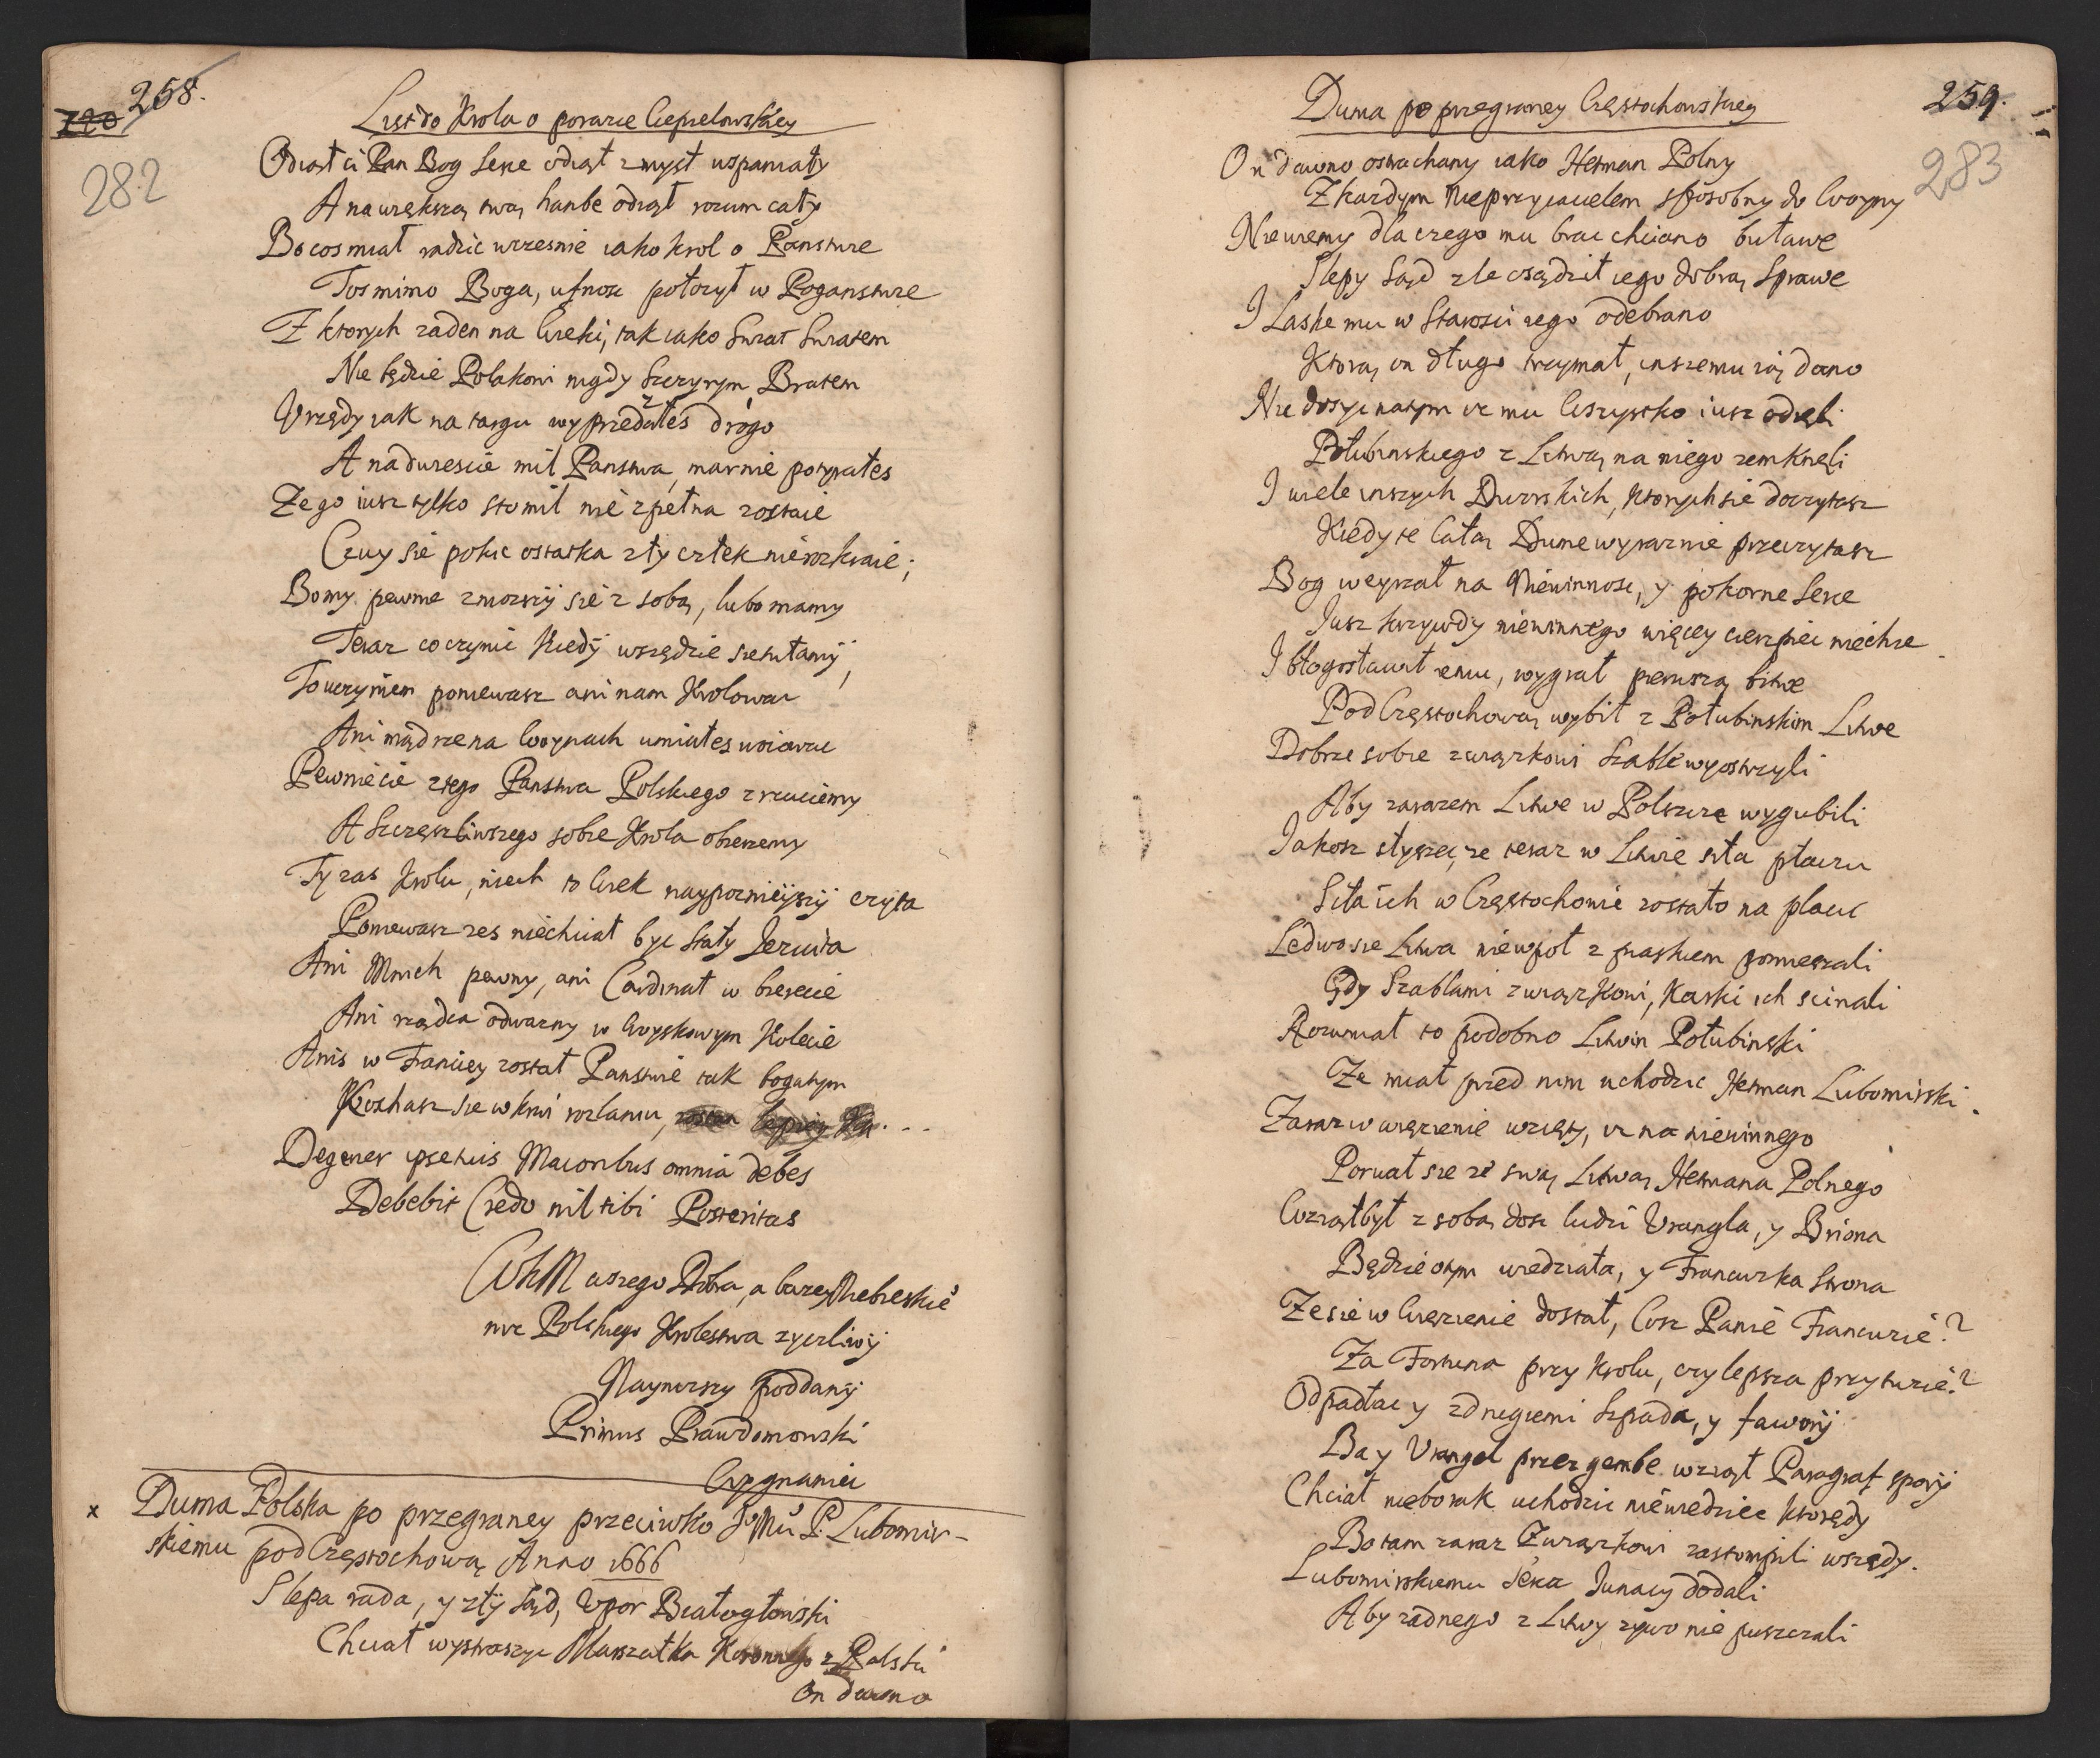 258.
220
282
List do Krola o porazce Ciepielowskiey
Odiął ci Pan Bog serce odiął zmysł uspaniały
A na większą twą hanbe odiął rozum cały
Bo cos miał radzic wczesnie iako krol o Panstwie
Tos mimo Boga, ufnosc położył w Poganstwie
Z ktorych zaden na wieki, tak iako swiat swiatem
Nie będzie Polakowi nigdy szczyrym Bratem
Urzędy iak na targu wyprzedałes drogo
A nadwiescie mil Panstwa, marnie pozyrałes
Ze go iusz tylko sto mil nie zpełna zostaie
Czuy sie pokic ostatka zły człek nie rozkraie;
Bo my pewnie zmorszy sie z sobą, lubo mamy
Teraz co czynic kiedy wszędzie sie tułamy,
To uczyniem poniewasz ani nam Krolowac
Ani mądrze na Woynach umiałes woiowac
Pewnie cie z tego Panstwa Polskiego zrzuciemy
A szczęszliwszego sobie Krola obierzemy
Ty zas Krolu, niech to wiek naypoznieyszy czyta
Poniewasz zes niechciał byc stały Jezuita
Ani Mnich pewny, ani Cardinał w birecie
Ani rządca odwazny w woyskowym kolecie
Anis w Franciey został Panstwie tak bogatym
Kochasz sie w krwi rozlaniu,
Degener ipse tuis Maioribus omnia debes
Debebit Credo nil tibi Posteritas
WKM aszego Dobra, a barzey Niebieskie
niz Polskiego Krolestwa zyczliwy
Nayniszszy poddany
Primus Prawdomowski
Wygnaniec
x Duma Polska po przegraney przeciwko JoMu P. Lubomir-
skiemu pod Częstochową Anno 1666
Slepa rada, y zły sąd, Upor Białogłowski
Chciał wystraszyc Marszałka Koronnego z Polski
On dawno
Duma po przegraney Częstochowskiey
259.
283
On dawno osłuchany iako Hetman Polny
Z kazdym nieprzyiacielem sposobny do Woyny
Niewiemy dla czego mu brac chciano buławe
Slepy sąd zle osądził iego dobrą sprawe
I Laske mu w starosci iego odebrano
Ktorą on długo trzymał, inszemu ią dano
Nie dosyc natym ze mu wszystko iusz odieli
Połubinskiego z Litwą na niego zemkneli
I wiele inszych Dworskich, ktorych sie doczytasz
Kiedy te całą Dume wyraznie przeczytasz
Bog weyrzał na Niewinnosc, y pokorne serce
Jusz krzywdy niewinnego więcey cierpiec niechce
I błogosławił emu, wygrał pierwszą bitwe
Pod Częstochową wybił z Połubinskim Litwe
Dobrze sobie związkowi szable wyostrzyli
Aby zarazem Litwe w Polszcze wygubili
Jakosz słyszec, ze teraz w Litwie siła płaczu
Siła ich w Częstochowie zostało na placu
Ledwo sie Litwa niewpoł z piaskiem pomieszali
Gdy szablami związkowi, karki ich scinali
Rozumiał to podobno Litwin Połubinski
Ze miał pred nim uchodzic Hetman Lubomirski.
Zaraz w więzienie wzięty, ze na niewinnego
Porwał sie ze swą Litwą Hetmana Polnego
Wziął był z sobą dosc ludzi Wrangla, y Briona
Będzie o tym wiedziała, y Francuzka strona
Ze sie w więzienie dostał, Cosz Panie Francuzie?
Za Fortuna przy krolu, czy lepsza przy tuzie?
Odpadła cy zdrugiemi szpada, y fawory
Ba y Vrangel przez gembe wziął Paragraf spory
Chciał nieborak uchodzic niewiedziec ktorędy
Bo tam zaraz Związkowi zastompili wszędy.
Lubomirskiemu serca Junacy dodali
Aby zadnego z Litwy zywo nie puszczali